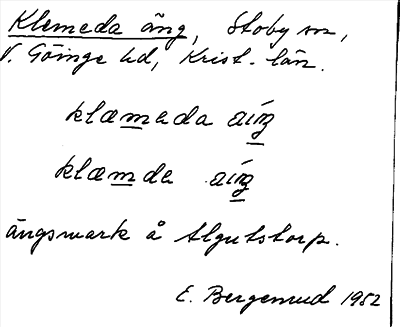 Klemeda äng, Stoby sn,
V. Göinge hd, Krist. län.
klæmeda aíŋ
klæmde aíŋ
ängsmark å Algutstorp.
E. Bergemud 1952